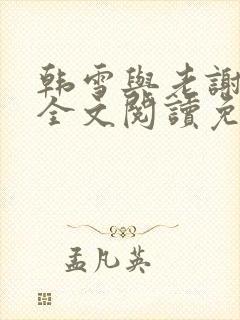 韩雪與老謝
全文閱讀免
孟凡英